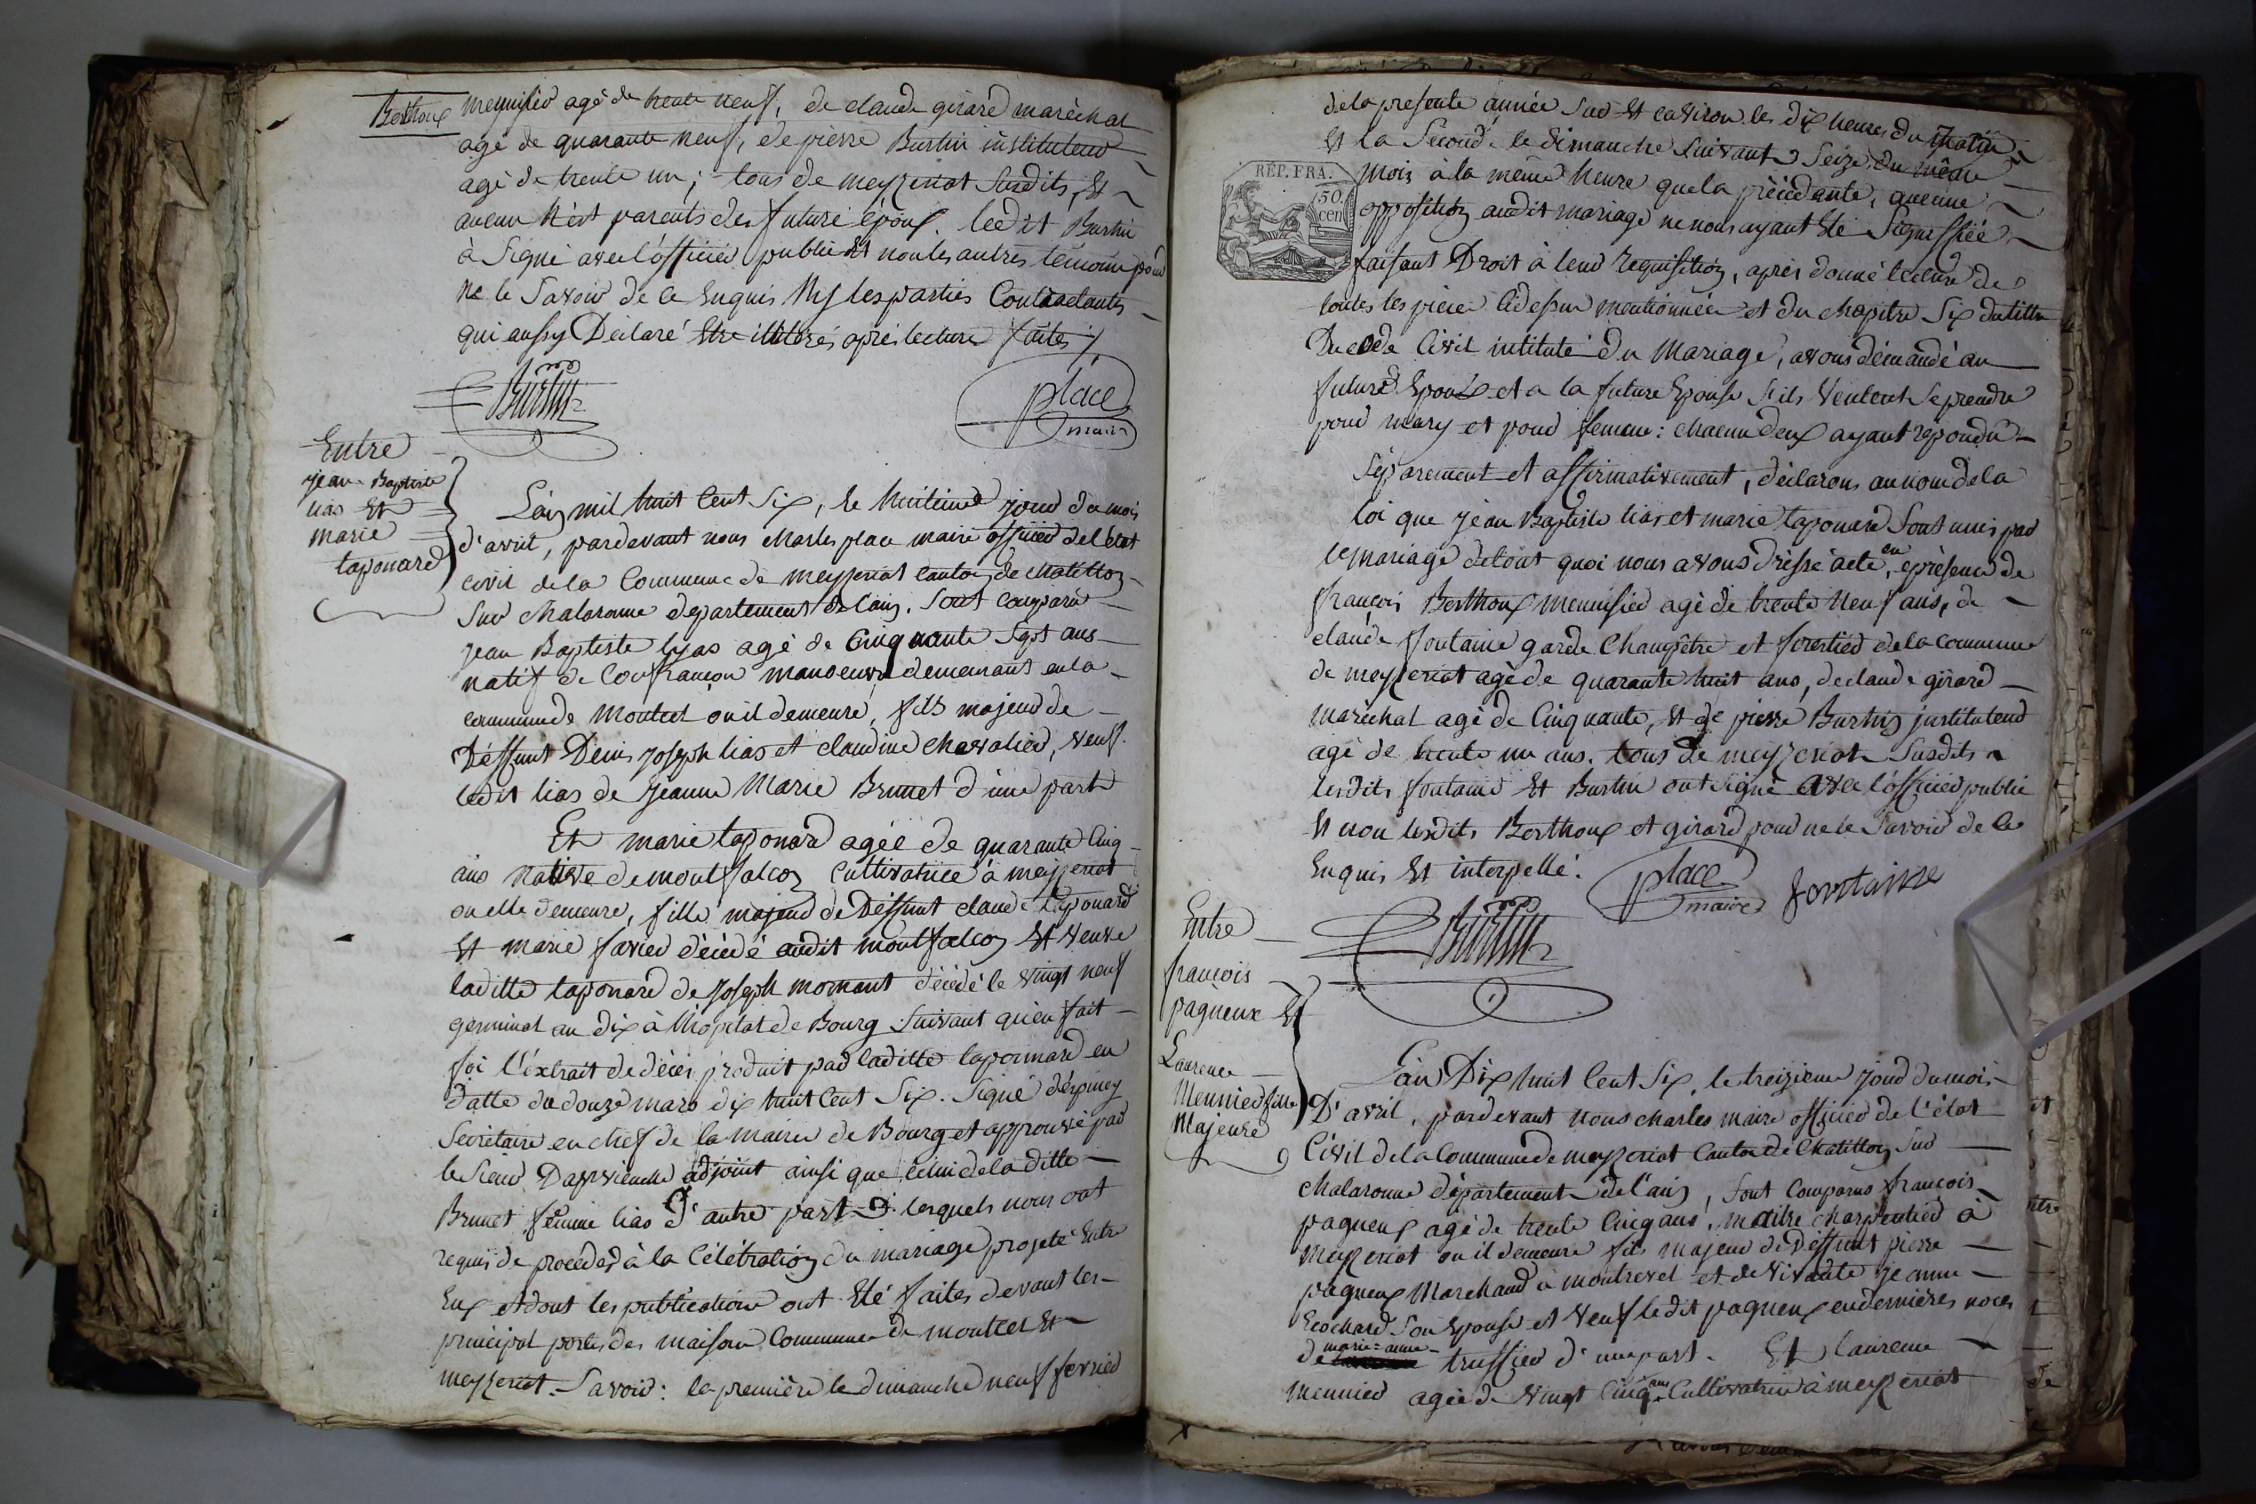 Berthoux
menuisier agé de trente neuf, de claude girard maréchal
agé de quarante neuf, de pierre Burtin instituteur
agé de trente un; tous de meyzeriat susdits, Et
aucun n'est parents des futurs époux. ledit Burtin
à Signé avec l'officier public et non les autres témoins pour
ne le Savoir de ce Enquis Ny les parties Contractantes
qui aussy Déclaré Etre illitérés après lecture faites
Burtin
place
maire
Entre
jean-Baptiste
lias Et
marie
taponard
L'an mil huit Cent Six, le huitième jour du mois
d'avril, pardevant nous charles place maire officier de l'état
civil de la Commune de meyzeriat canton de chatillon
Sur chalaronne departement de l'ain. Sont comparu
jean Baptiste lyas agé de Cinquante Sept ans
natif de Confrançon manoeuvre demeurant en la
commune de Montcet où il demeure, fils majeur de
Déffunt Denis joseph lias et claudine chevalier, veuf
ledit lias de Jeanne Marie Brunet d'une part
Et marie taponard agée de quarante Cinq
ans native de montfalcon Cultivatrice à meyzeriat
ou elle demeure, fille majeur de Déffunt claude taponard
Et marie favier décédé audit montfalcon Et veuve
laditte taponard de Joseph momant décédé le vingt neuf
germinal an dix à l'hopital de Bourg Suivant qu'en fait
foi l'éxtrait de décès produit par laditte taponnard en
datte du douze mars dix huit Cent Six. Signé d'éspiney
Secrétaire en chef de la mairie de Bourg et approuvé par
le Sieur adjoint ainsi que celui de laditte
Brunet femme lias D'autre part lesquels nous ont
requis de procéder à la Célébration du mariage projeté Entre
Eux et dont les publications ont Eté faites devant les
principal portes des maisons Communes de montcet Et
meyzeriat. Savoir: la première le dimanche neuf fevrier
de la presente année Sur Et environ les dix heures du Matin
Et la Seconde le dimanche Suivant Seize du même
RÉP. FRA.
50.
cen
Mois à la même heure que la précédante, aucune
opposition audit mariage ne nous ayant Eté Signiffiée
faisant Droit à leur requisition, après donné lecture de
toutes les pièces Cidessus mentionnées et du chapitre Six du titre
Du code Civil intitulé du Mariage, avons démandé au
futur Epoux et a la future Epouse S'ils Veulent Se prendre
pour mary et pour femme: chacun deux ayant répondu
Séparement et affirmativement, déclarons au nom de la
loi que jean Baptiste lias et marie taponard Sont unis par
le mariage de tout quoi nous avons dréssé acte, en présence de
françois Berthoux menuisier agé de trente Neuf ans, de
claude fontaine garde Champêtre et forestier de la commune
de meyzeriat agé de quarante huit ans, de claude girard
Maréchal agé de Cinquante, Et de pierre Burtin instituteur
agé de trente un ans. tous de meyzeriat Susdits
lesdits fontaine Et Burtin ont Signé avec l'officier public
Et non lesdits Berthoux et girard pour ne le Savoir de ce
Enquis Et interpellé.
place
maire
fontaine
Burtin
Entre
françois
paqueux Et
Laurence
Meunier fille
Majeure
L'an Dix huit Cent Six, le treizieme jour du mois
D'avril, pardevant nous charles maire officier de l'état
Civil de la Commune de meyzeriat Canton de Chatillon Sur
chalaronne département de l'ain, Sont Comparus françois
paqueux agé de trente Cinq ans, maitre charpentier à
meyzeriat ou il demeure fils majeur de Déffunt pierre
paqueux Marchand à montrevel et de vivante jeanne
Ecochard Son Epouse et Veuf ledit paqueux en dernières noces
de marie-anne truffier d'une part. Et laurence
meunier agée de Vingt Cinq ans Cultivatrice à meyzeriat